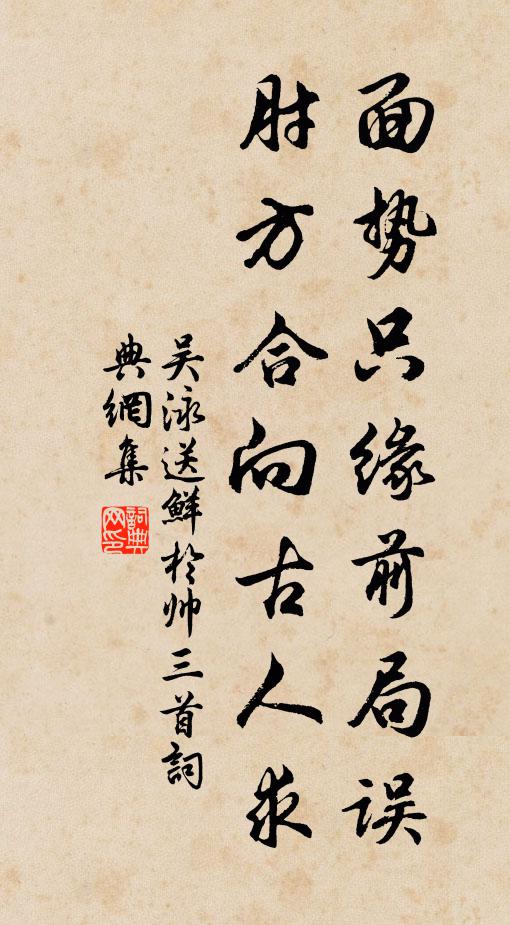 面势只缘前局误
肘方合向古人求
吴泳送鲜於帅三首詞
典網集
詞典网印